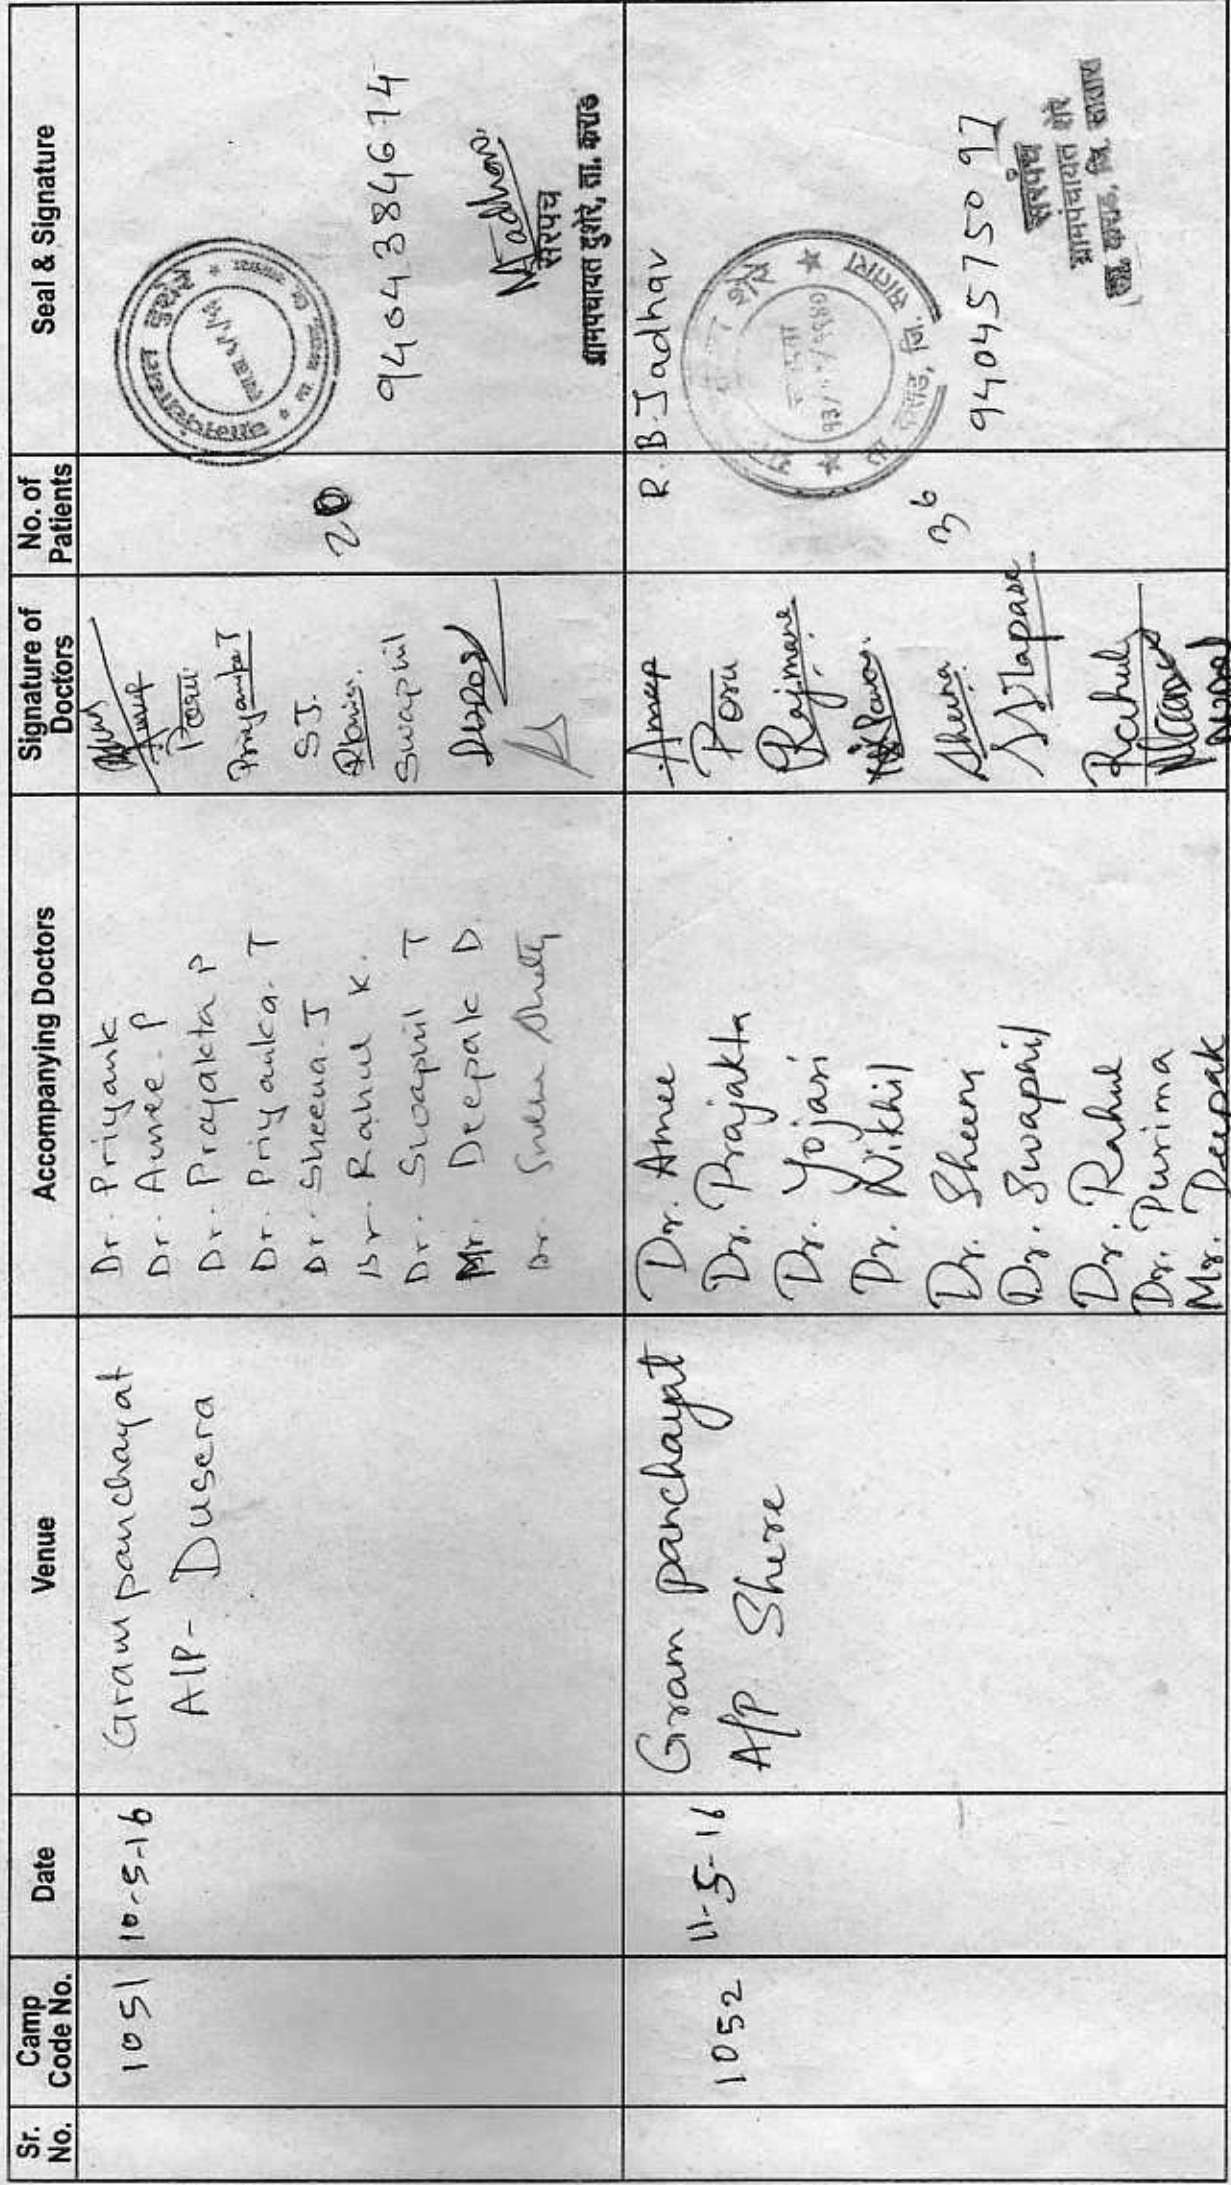 Sr. No.
Camp Code No.
Date
Venue
Accompanying Doctors
Signature of Doctors
No. of Patients
Seal & Signature
1051
10-5-16
Gram panchayat
A/P- Dusera
Dr. Priyank
Dr. Amee. P
Dr. Prajakta P
Dr. Priyanka. T
Dr. Sheena. J
Dr. Rahul K.
Dr. Swapnil T
Mr. Deepak D.
Dr.
Ameep
Poru
Priyanka T
S.J.
Swapnil
20
ग्रामपंचायत दुशेरे
9404384674
सरपंच
ग्रामपंचायत दुशेरे, ता. कराड
1052
11-5-16
Gram panchayat
A/P Shere
Dr. Amee
Dr. Prajakta
Dr. Yojani
Dr. Nikhil
Dr. Sheena
Dr. Swapnil
Dr. Rahul
Dr. Purima
Mr. Deepak
Ameep
Poru
Rajmane
Pawar
Sheena
Rahul
36
R. B. Jadhav
कराड, जि. सातारा
9404575097
सरपंच
ग्रामपंचायत शेरे
ता. कराड, जि. सातारा